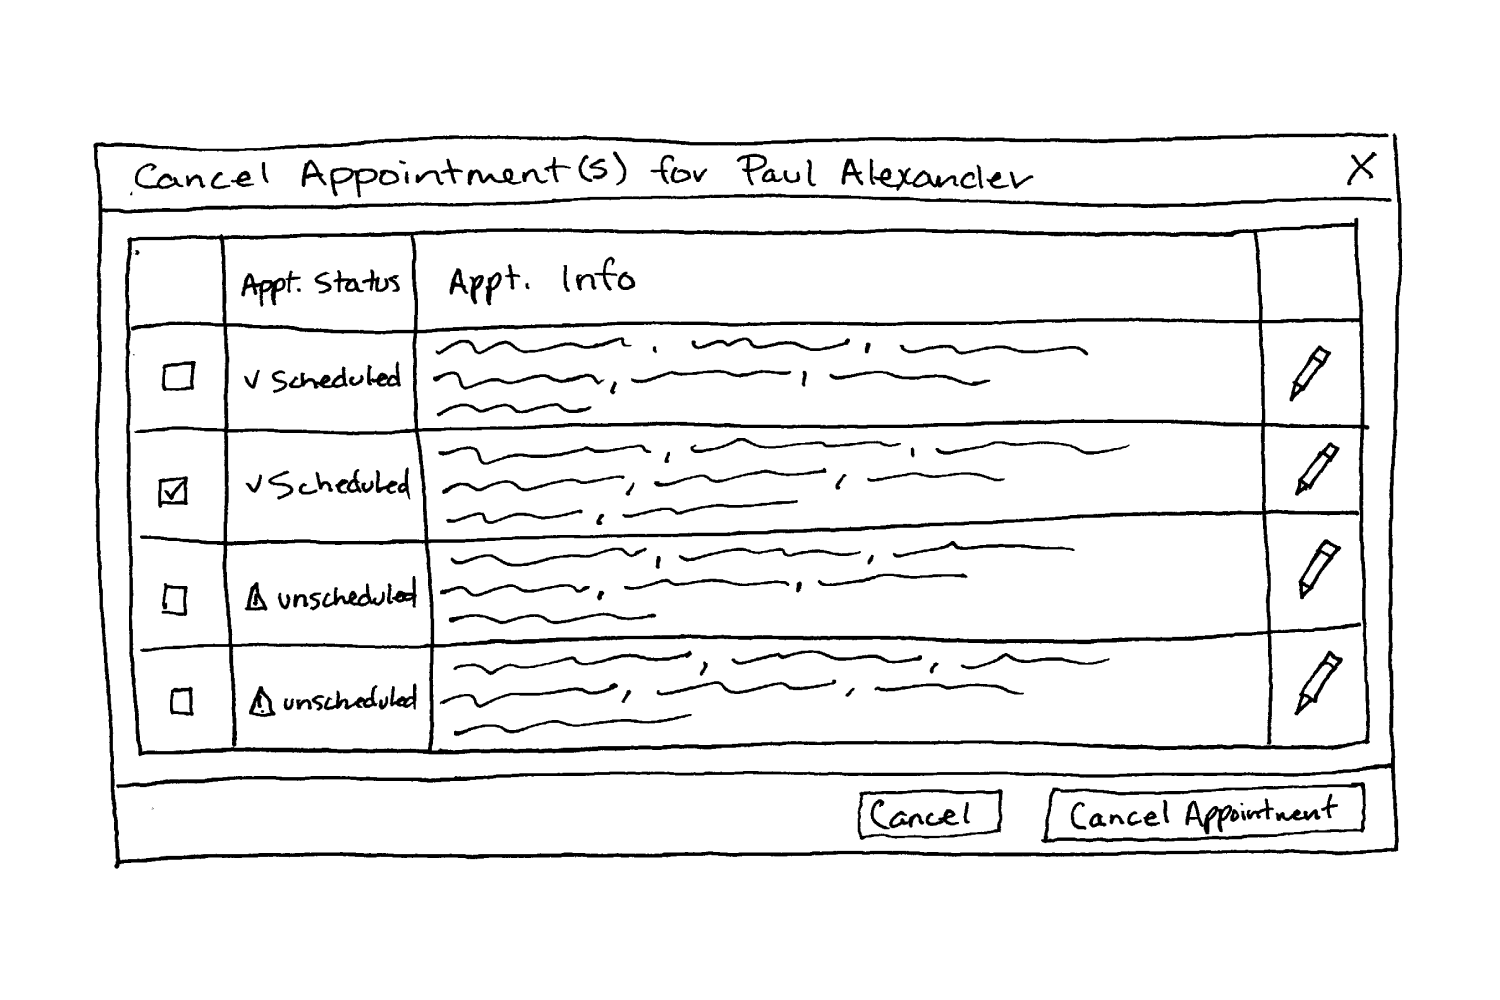 Cancel Appointment(s) for Paul Alexander X
Appt. Status Appt. Info
✓ Scheduled
✓ Scheduled
⚠ unscheduled
⚠ unscheduled
Cancel Cancel Appointment